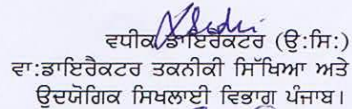 ਵਧੀਕ ਡਾਇਰੈਕਟਰ (ਉ:ਸਿ:)
ਵਾ:ਡਾਇਰੈਕਟਰ ਤਕਨੀਕੀ ਸਿੱਖਿਆ ਅਤੇ
ਉਦਯੋਗਿਕ ਸਿਖਲਾਈ ਵਿਭਾਗ ਪੰਜਾਬ।